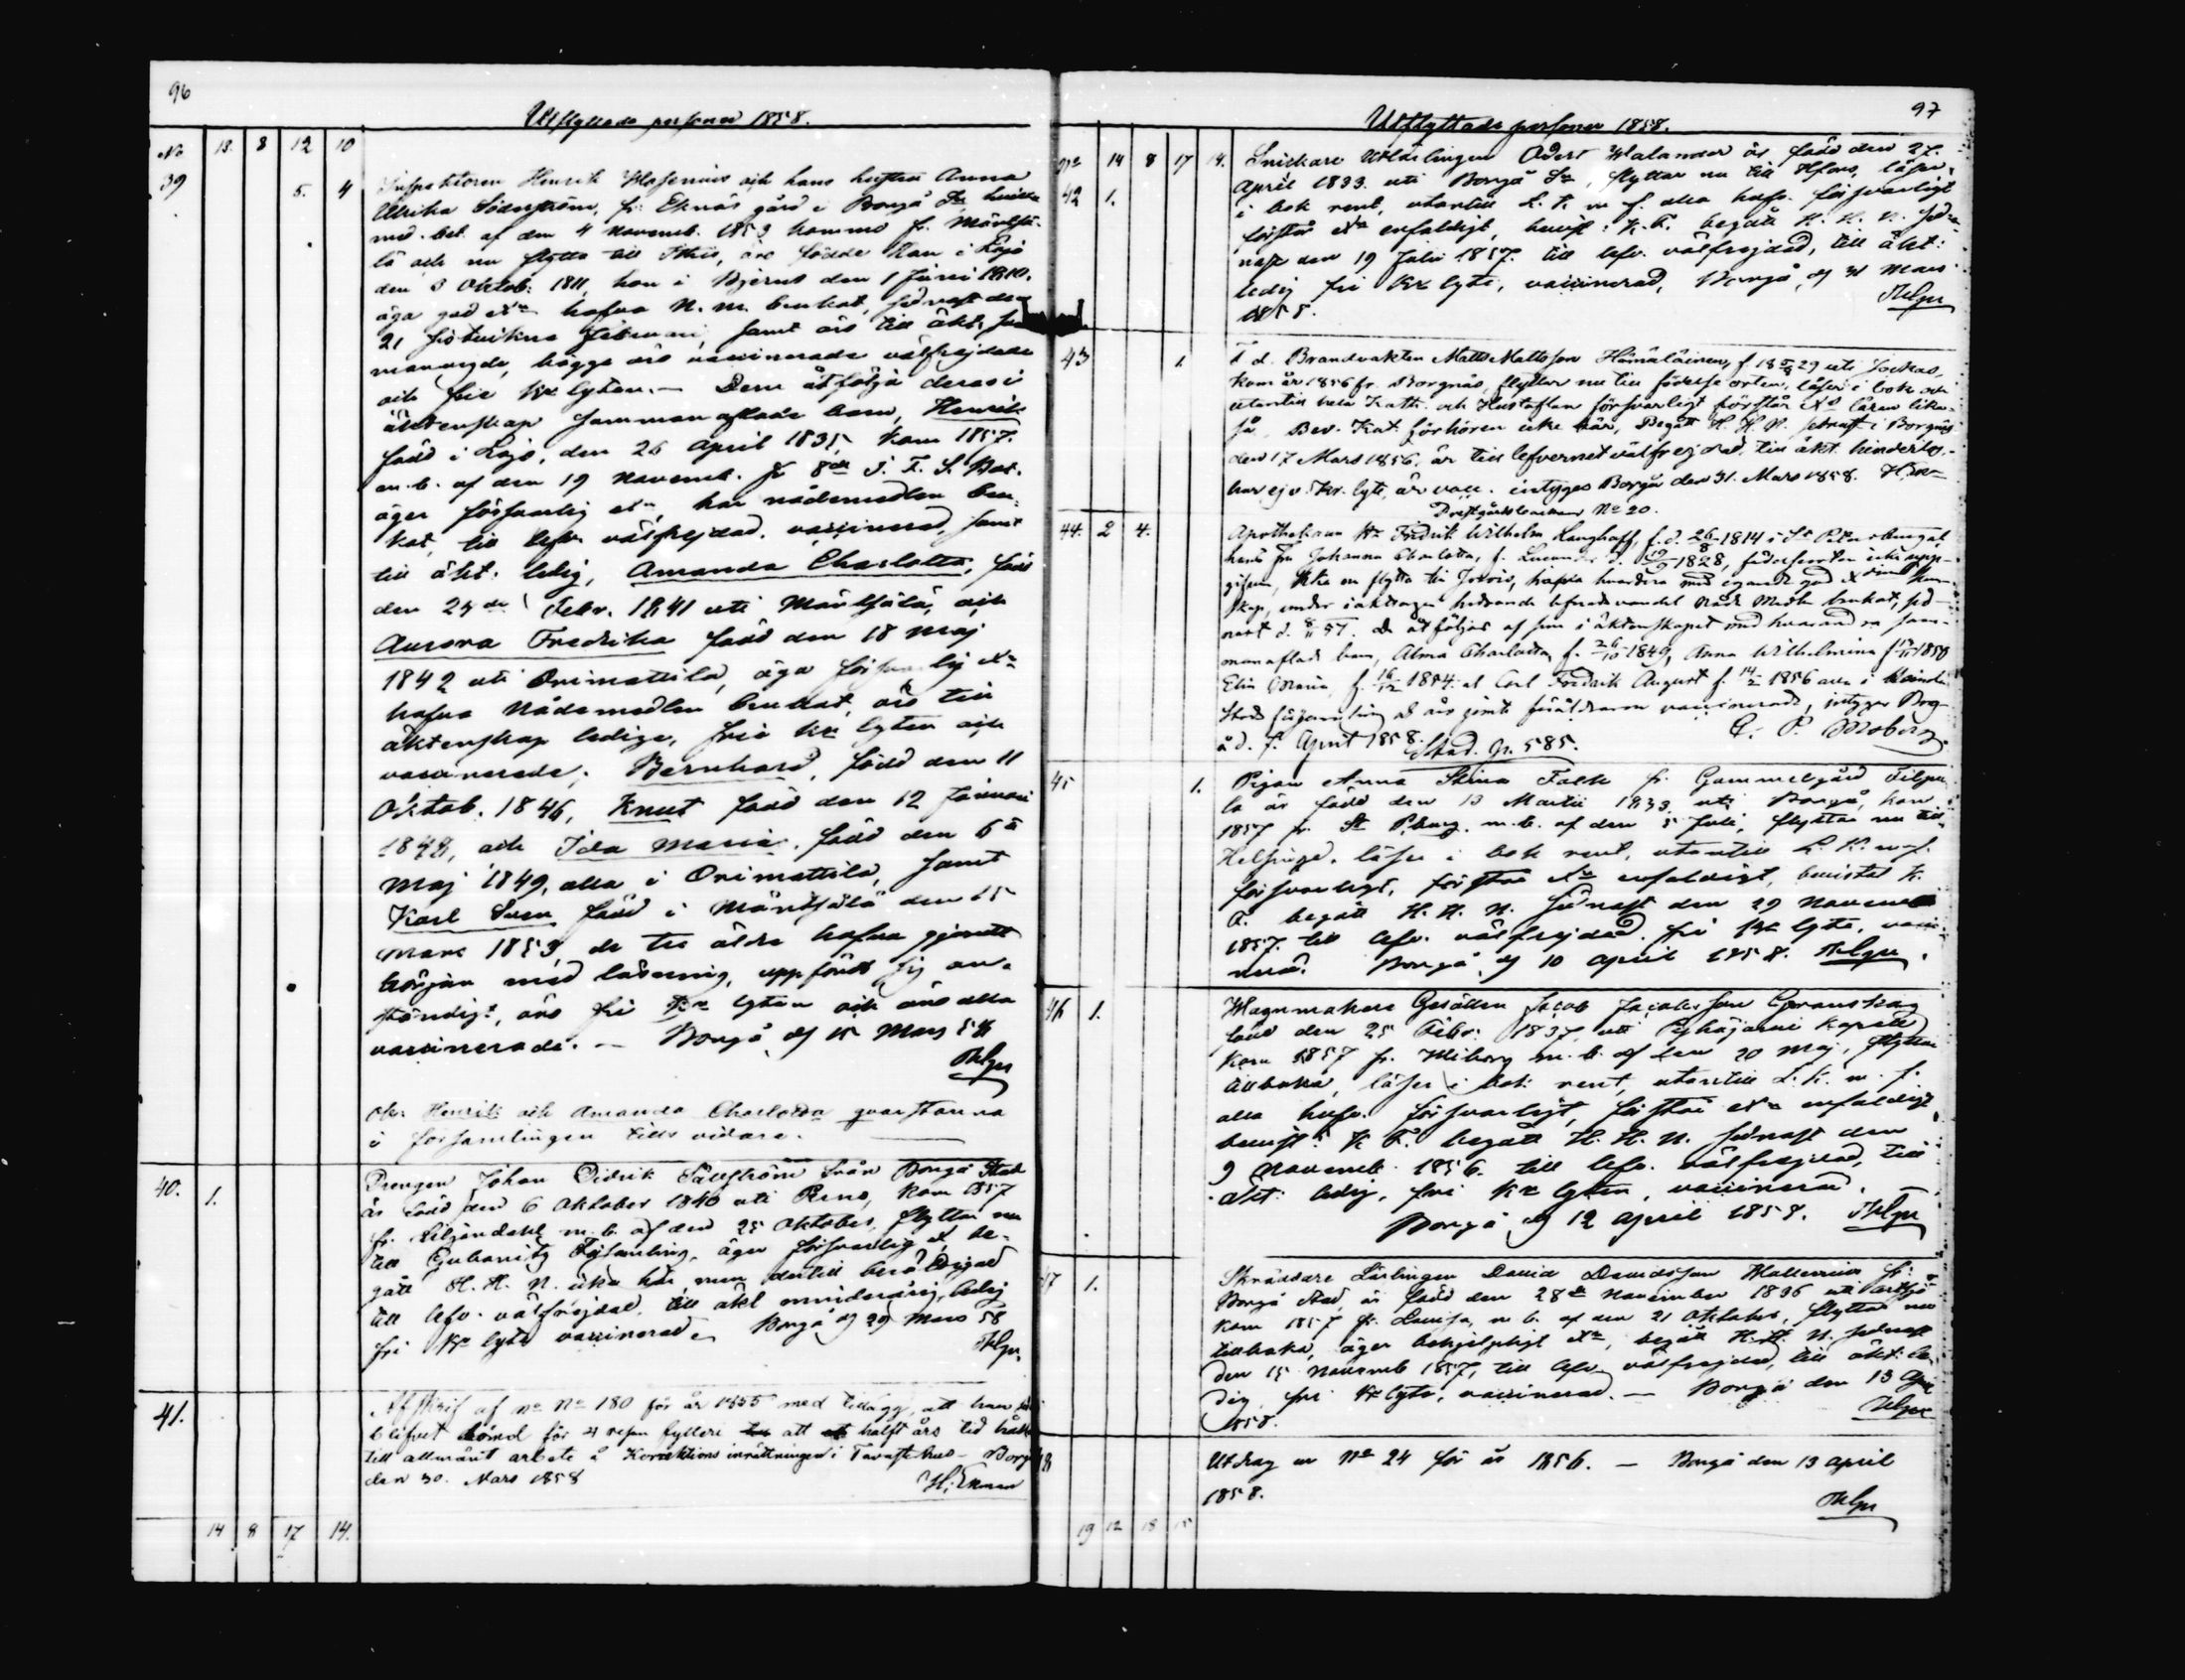 96
Utflyttade personer 1858.
No 13. 8 12 10
39 5. 4
Inspektoren Henrik Hasenius och hans hustru Anna
Ulrika Söderström, fr. Eknäs gård i Borgå Sn
med. bet. af den 4 Novemb. 1853 komne fr. Mäntsä-
lä och nu flytta till äro födde Han i Lojo
den 3 Oktob. 1811, hon i Bjerno den 1 Juni 1810.
äga god hafva N. m. brukat, sednast den
21 sistvikne Februari, samt äro till äkt.
manvigde, bägge äro vaccinerade välfrejdade
och frie lyten. — Dem åtfölja deras i
äktenskap sammanaflade barn, Henrik
född i Lojo, den 26 April 1835, kom 1857.
m. b. af den 19 Novemb. fr 8de F. F. S. Bat.
äger försvarlig har nådemedlen bru-
kat, till lefv. välfrejdad, vaccinerad, samt
till äkt. ledig, Amanda Charlotta, född
den 24de Febr. 1841 uti Mäntsälä, och
Aurora Fredrika född den 18 Maj
1842 uti Orimattila, äga försvarlig
hafva Nådemedlen brukat, äro till
äktenskap ledige, frie lyten och
vaccinerade; Bernhard, född den 11
Oktob. 1846, Knut född den 12 Januari
1848, och Ida Maria, född den 6
Maj 1849, alla i Orimattila, samt
Karl Sven född i Mäntsälä den 15
Mars 1853, de tre äldre hafva gjordt
början med läsning, uppfördt sig an-
ständigt, äro fri lyten och äro alla
vaccinerade. — Borgå d 15 Mars 58
Henrik och Amanda Charlotta qvarstanna
i församlingen tills vidare.
40. 1.
Drengen Johan Didrik Sällström från Borgå Stad
är född den 6 Oktober 1840 uti Perno, kom 1857
fr. Liljendahl m. b. af den 25 Oktober, flyttar nu
till Gubanitz Församling, äger försvarlig be-
gått H. H. N. icke här, men dertill berättigad
till lefv. välfrejdad, till äkt minderårig, ledig
fri lyte vaccinerad. Borgå d 29 Mars 58
41.
Afskrif af No 180 för år 1855 med tillägg, att han
blifvet dömd för 4 resan fylleri att halft års tid
till allmänt arbete å Korrektions inrättningen i Tavastehus — Borgå
den 30. Mars 1858 H. Ekman
14 8 17 14.
97
Utflyttade personer 1858.
No 14 8 17 14.
42 1.
Snickare Utlärlingen Odert Walander är född den 27.
April 1833. uti Borgå Sn, flyttar nu till Hfors, läser
i bok rent, utantill L. K. m f. alla hufv. försvarligt
förstår enfaldigt, bevist: K. F. begått H. H. N. sed-
nast den 19 Julii 1857. till lefv. välfrejdad, till äkt:
ledig fri lyte, vaccinerad, Borgå d 31 Mars
1858.
43 1.
F d. Brandvakten Matts Mattsson Hämäläinen, f 18 29 uti Jockas,
kom år 1856 fr. Borgnäs, flyttar nu till födelse orten, läser i bok och
utantill hela Kath. och Hustaflan försvarligt förstår läran lika-
så, Bev. Kat. förhören icke här, Begått H. H. N. senast i Borgnäs
den 17 Mars 1856. är till lefvernet välfrejdad, till äkt. hinderlös,
har ej v. Kr. lyte, är vacc. intyges Borgå den 31. Mars 1858.
No 20.
44. 2 4.
Apothekaren Hr Fredrik Wilhelm Langhoff, f. d. 26 1814 i St Petersburg at
hans Fru Johanna Charlotta, f. d. 19 1828, födelseorten icke upp-
gifven, flytta till Jokkis, hafva hvardera med egande god kun-
skap, under iakttagen hedrande lefnadsvandel Nåde Medlen brukat, sed-
nast d. 57. De åtföljas af sine i äktenskapet med hvarandra sam-
manaflade barn, Alma Charlotta, f. 26 1849, Anna Wilhelmina f. 1850
Elin Maria, f. 16/12 1854. at Carl Fredrik August f. 14/2 1856 alla i
Stads församling at äro jemte föräldrarna vaccinerade, intyger Borg-
å d. 7. April 1858. C. P. Moberg.
Stad. N. 585.
45 1.
Pigan Anna Stina Falk fr. Gammelgård
är född den 13 Martii 1833 uti Borgå, kom
1857 fr. St Pburg. m. b. af den 5 Juli, flyttar nu till
Helsinge. läser i bok rent, utantill L. K. m f.
försvarligt, förstår enfaldigt, bevistat K.
F. begått H. H. N. sednast den 29 Novemb
1857. till lefv. välfrejdad. fri lyte, vacci-
nerad. Borgå d 10 April 1858.
46 1.
Wagnmakare Gesällen Jacob Jacobsson
född den 25 Febr: 1837, uti Pyhäjärvi Kapell
kom 1857 fr. Wiborg m. b. af den 20 Maj, flyttar
tillbaka, läser i bok rent, utantill L. K. m. f.
alla hufv. försvarligt, förstår enfaldigt
bevist: K F. begått H. H. N. sednast den
9 Novemb 1856. till lefv. välfrejdad, till
äkt: ledig, fri lyten, vaccinerad. —
Borgå d 12 April 1858.
47 1.
Skräddare Lärlingen David Davidsson Wallenius fr:
Borgå Stad, är född den 28de November 1836 uti Artsjö
kom 1857 fr. Lovisa, m b. af den 21 Oktober, flyttar nu
tillbaka, äger behjelpligt begått H. H. N. sednast
den 15 Novemb 1857, till lefv. välfrejdad, till äkt: le-
dig, fri lyte, vaccinerad. — Borgå den 13 April
1858.
48
Utdrag ur No 24 för år 1856. — Borgå den 13 April
1858.
19 12 18 15